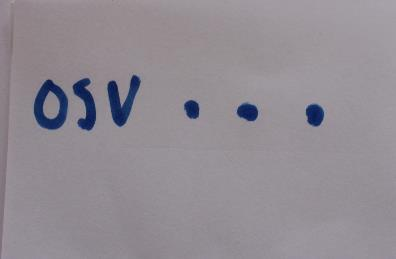 OSV . . .